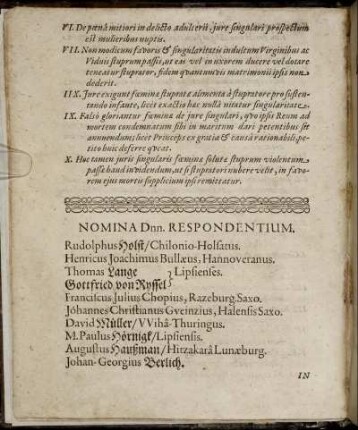 VI. De pœnâ mitiori in delicto adulterii, jure singulari prospectum
est mulieribus nuptis.
VII. Non modicum favoris & singularitatis indultum Virginibus ac
Viduis stuprum passis, ut eas vel in uxorem ducere vel dotare
teneatur stuprator, fidem quamvis matrimonii ipsis non
dederit.
IIX. Jure exigunt fœminæ stupratæ alimenta à stupratore pro susten-
tando infante, licet exactio hæc nullâ nitatur singularitate.
IX. Falsò gloriantur fœminæ de jure singulari, qvo ipsis Reum ad
mortem condemnatum sibi in maritum dari petentibus sit
annuendum; licet Princeps ex gratia & causâ rationabili, pe-
titio huic deferre qveat.
X. Huc tamen juris singularis fœminæ solutæ stuprum violentum
passæ haud invidendum, ut si stupratori nubere velit, in favo-
rem ejus mortis supplicium ipsi remittatur.
NOMINA Dnn. RESPONDENTIUM.
Rudolphus Holst / Chilonio-Holsatus.
Henricus Joachimus Bullæus, Hannoveranus.
Thomas Lange } Lipsienses.
Gottfried von Ryssel
Franciscus Julius Chopius, Razeburg. Saxo.
Jóhannes Christianus Gveinzius, Halensis Saxo.
David Müller / VVihâ-Thuringus.
M. Paulus Hörnigk / Lipsiensis.
Augustus Haußman / Hitzakarâ Lunæburg.
Johan-Georgius Berlich.
IN